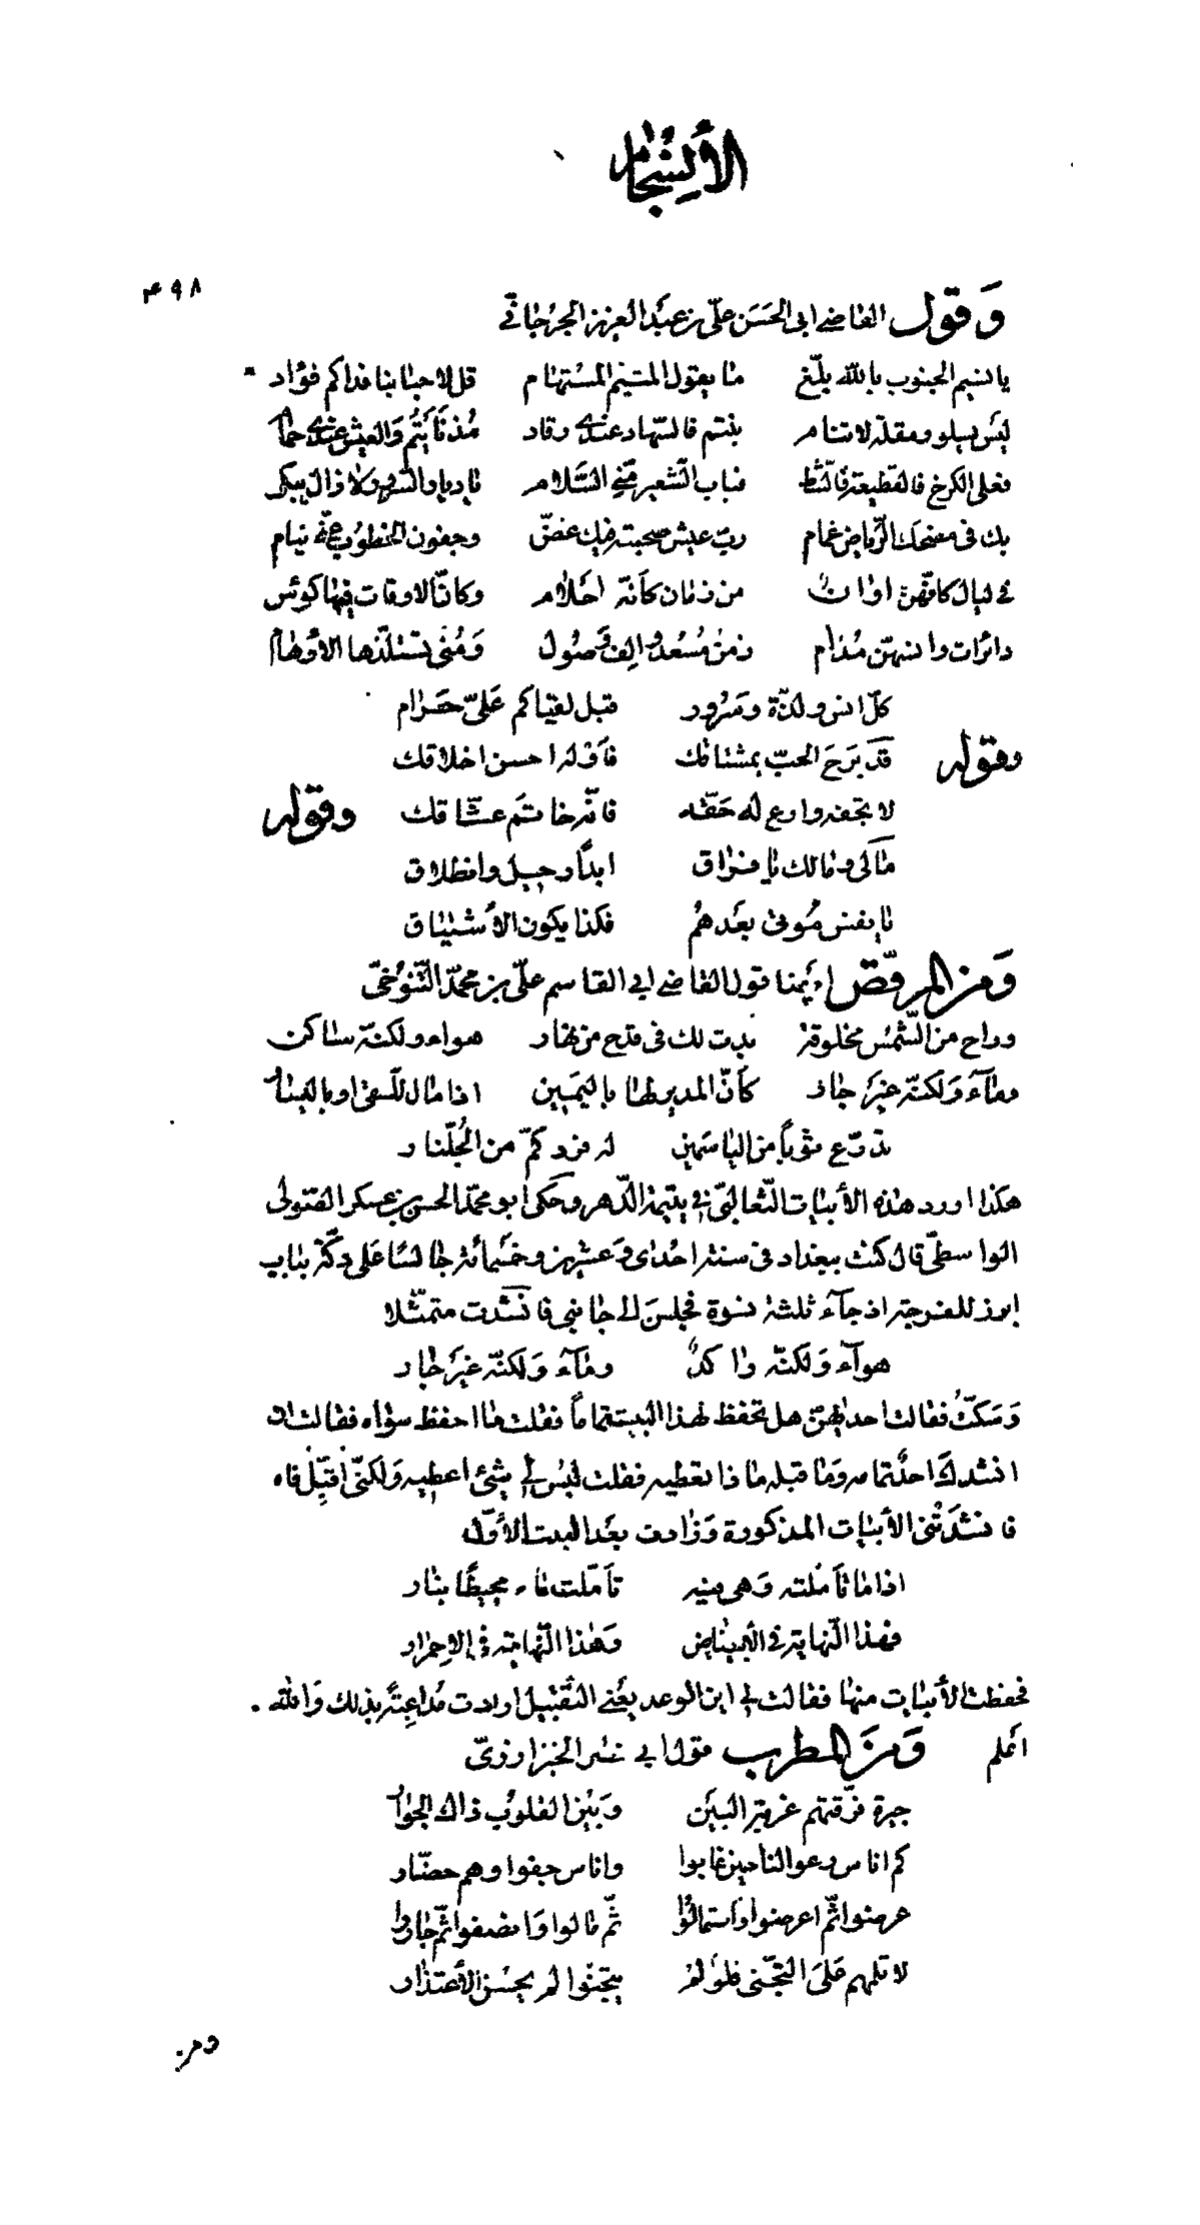 الأنسجام
٤٩٨
وَقول القاضي ابي الحَسَن علّى بن عبَد العزيز الجرجاني
يا نسيم الجنوب بالله بلّغ ما يقول المتيّم المستهام قل لاحبابنا فداكم فؤاد
ليس يسلو ومقلة لا تنام بنتم فالسّهاد عندى رقاد مُذ نَأيتُم وَالعيش عندى حمام
فعلى الكرخ فالقطيعة فالشّط فباب الشّعير منّى السّلام يا ديار السّرور لا زال يبكى
بك في مضحك الرّياض غمام ربّ عيش صحبته فيك غضّ وجفون الخطوب عنّى نيام
في ليال كانّهنّ امان من زمان كأنّه احلام وكانّ الاوقات فيها كؤس
دائرات وانسهنّ مُدام زمن مُسعد والف وصول وَمُنى تستلذّها الأوهام
كلّ انس ولذّة وسَرُور قبل لقياكم عَلىّ حَرام
وقوله قَد بَرحَ الحبّ بمشتاقك فأوله احسن اخلاقك
لا تجفه وارع له حَقّه فانّه خاتم عشّاقك وقوله
مَالى ومالك يا فراق ابداً رحيل وانطلاق
يا نفس مُوتى بعَدهُم فكذا يكون الأشتياق
وَمن المرقّص ايضا قول القاضي ابي القاسم علّي بن محمّد التّنوُخيّ
وراح من الشّمس مخلوقة بدت لك في قدح من نهار هواء ولكنّه ساكن
ومآء وَلكنّه غيرَ جار كأنّ المدير لها باليَمين اذا مال للسّقى او باليسار
تدرّع ثوباً من الياسمين له فرد كمّ من الجُلّنار
هكذا اورد هذه الأبيات الثّعالبيّ في يتيمة الدّهر وحَكى أبو محمّد الحسن بن عسكر الصّولى
الواسطيّ قال كنت ببغداد في سنة احدى وَعشرين وخَمسمائة جالسًا عَلى دكّة بباب
ابرز للفرجة اذ جآء ثلثة نسوة فجلسن الى جانبي فانشَدت متمثّلا
هوآء وَلكنّه راكدٌ ومآء وَلكنّه غير جار
وَسَكتّ فقالت احداهنّ هل تحفظ لهذا البيت تماماً فقلت ما احفظ سواه فقالت ان
انشدك احد تمامه وَما قبله ماذا تعطيه فقلت ليس لي شئ اعطيه وَلكنّى أقبّل فاه
فانشدَتنى الأبيات المذكورة وَزادت بعَد البيت الأوّل
اذا ما تأملته وَهى فيه تأمّلت ماء محيطًا بنار
فهذا النّهاية في الأبيضاض وَهذا النّهاية في الاحمرار
فحفظت الأبيات منها فقالت لي اين الوعد يعَنى التّقبيل ارادت مداعبتى بذلك وَالله
اعلم وَمنَ المطرب قول ابي نصر الخبزارزىّ
جيرة فرّقتهم غربة البين وَبَين القلوب ذاك الجوار
كم اناس رعوا لنا حين غابوا واناس جفوا وهم حضّار
عرضوا ثمّ اعرضوا وَاستمالوا ثمّ مالوا وَانصفوا ثمّ جاروا
لا تلمهم عَلىَ التّجنّى فلوَ لم يتجنّوا لم يحسُن الأعتذار
ومن